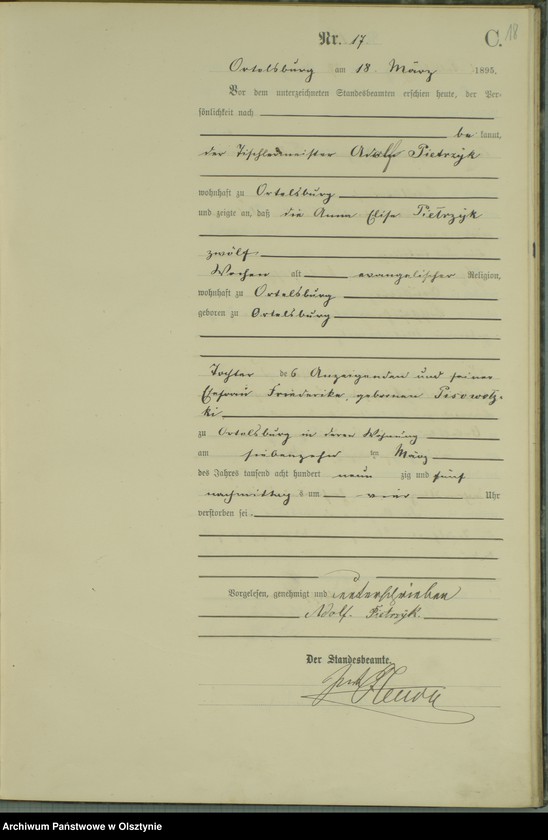 18
Nr. 17. C.
Ortelsburg am 18. März 1895.
Vor dem unterzeichneten Standesbeamten erschien heute, der Per-
sönlichkeit nach
be kannt,
der Tischlermeister Adolf Pietrzyk
wohnhaft zu Ortelsburg
und zeigte an, daß die Anna Elise Pietrzyk
zwölf
Wochen alt evangelischer Religion,
wohnhaft zu Ortelsburg
geboren zu Ortelsburg
Tochter des Anzeigenden und seiner
Ehefrau Friederike, geborenen
ki
zu Ortelsburg in deren Wohnung
am siebenzehn ten März
des Jahres tausend acht hundert neun zig und fünf
nachmittag s um vier Uhr
verstorben sei.
Vorgelesen, genehmigt und unterschrieben
Adolf. Pietrzyk.
Der Standesbeamte.
Archiwum Państwowe w Olsztynie